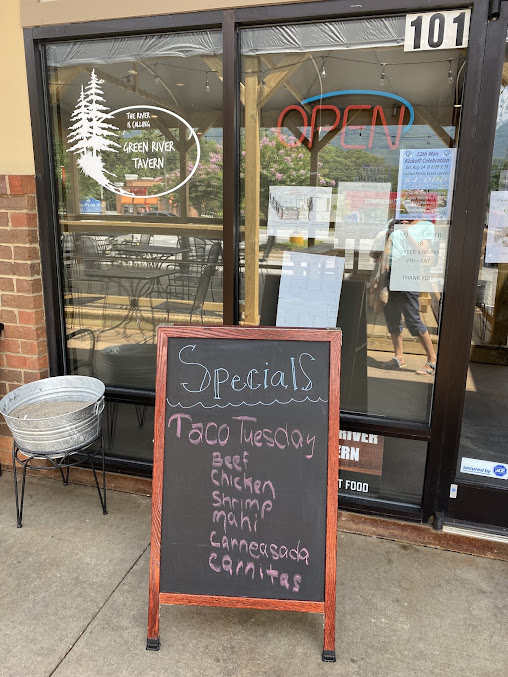 101
THE RIVER
IS CALLING
GREEN RIVER
TAVERN
OPEN
12th Man
Kickoff Celebration
AFTER 9:00 PM
FRI-SAT
THANK YOU
Specials
Taco Tuesday
Beef
Chicken
Shrimp
mahi
Carneasada
Carnitas
RIVER
RN
T FOOD
secured by ADT